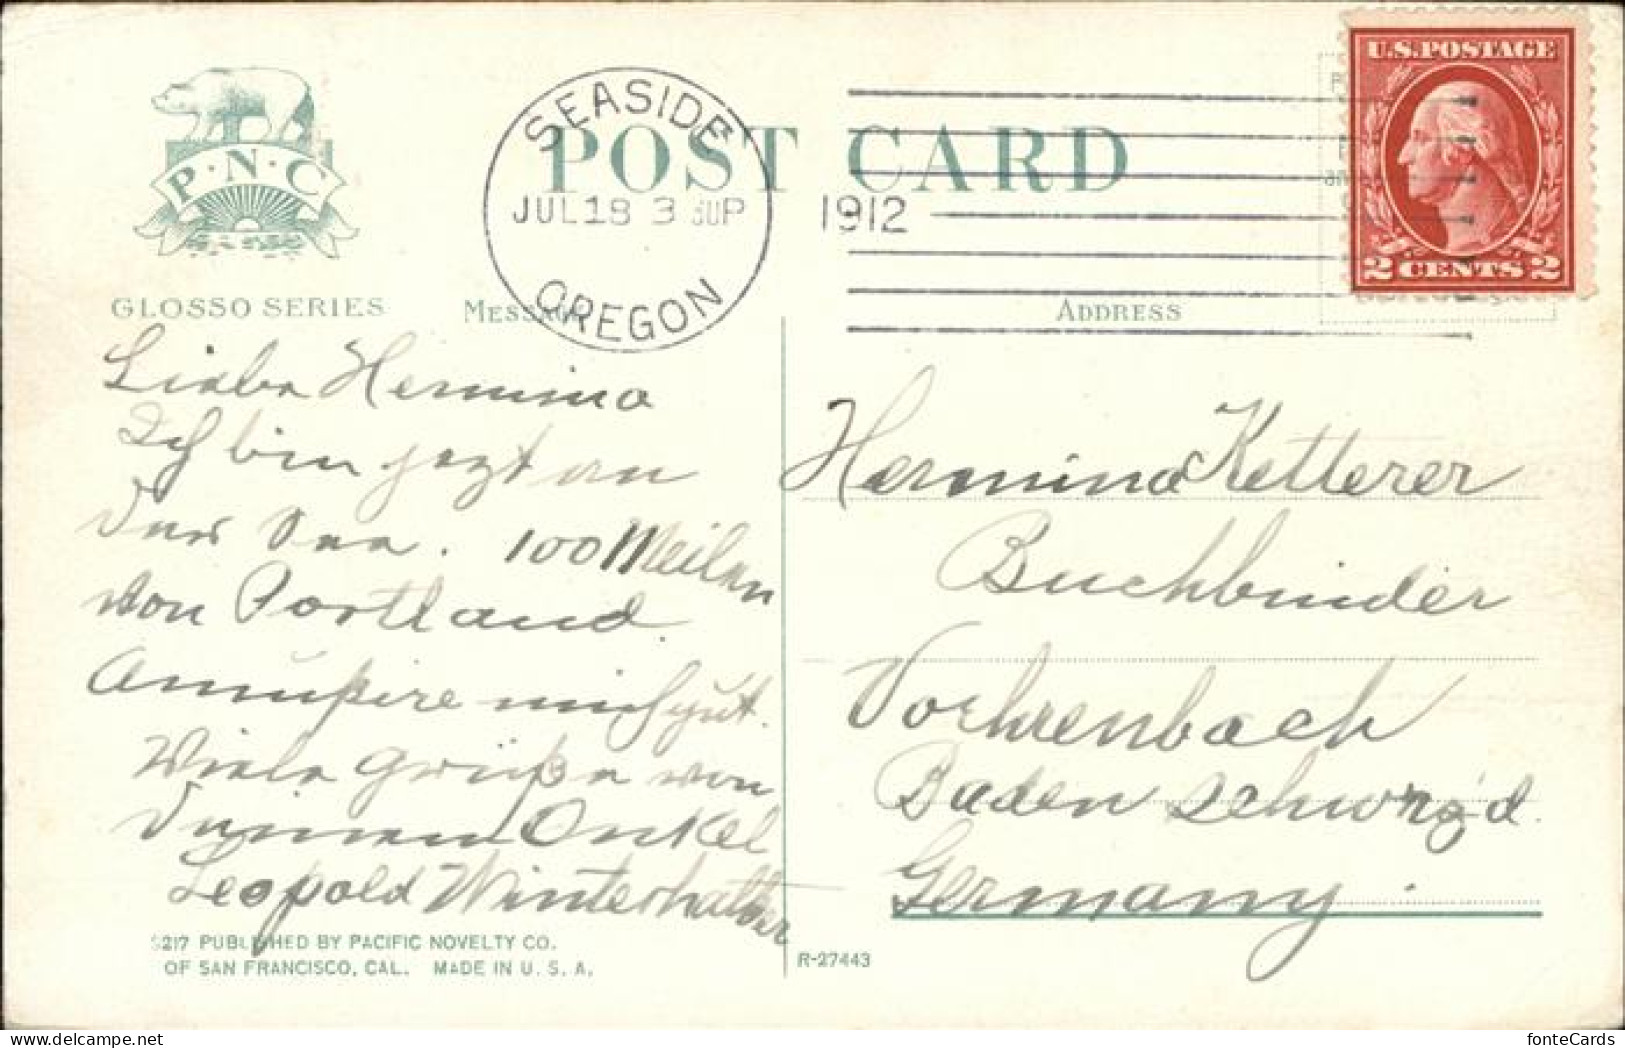 P·N·C
GLOSSO SERIES
POST CARD
SEASIDE
JUL 18 3 30P
1912
OREGON
U.S. POSTAGE
2 CENTS 2
MESSAGE
ADDRESS
Liebe Hermina
Ich bin jezt an
der See. 100 Meilen
von Portland.
Amüßire mich gut.
Viele Grüße von
Deinem Onkel
Leopold Winterhalter
Hermina Ketterer
Buchbinder
Voehrenbach
Baden Schwrz'd.
Germany.
S217 PUBLISHED BY PACIFIC NOVELTY CO.
OF SAN FRANCISCO, CAL. MADE IN U. S. A.
R-27443
fonteCards